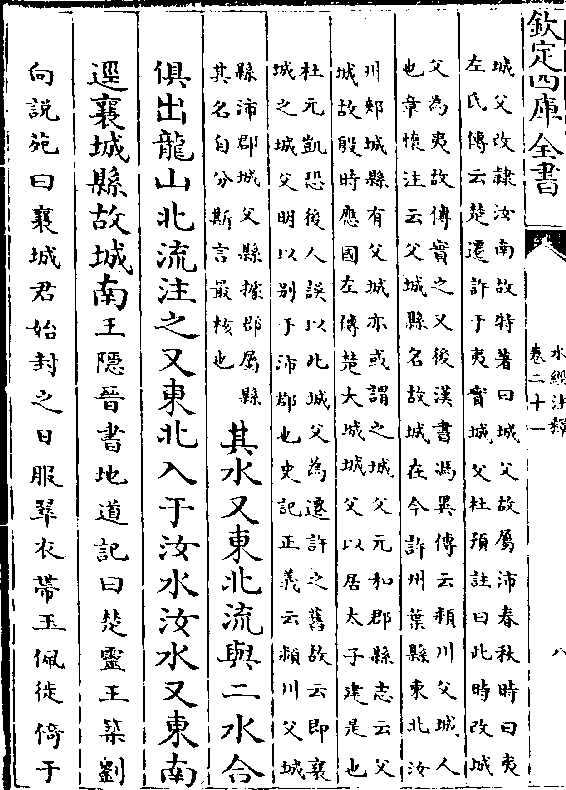 欽定四庫全書
水經注釋
卷二十一
八
城父改隸汝南故特著曰城父故屬沛春秋時曰夷
左氏傳云楚遷許于夷實城父杜預註曰此時改城
父為夷故傳實之又後漢書馮異傳云頴川父城人
也章懷注云父城縣名故城在今許州葉縣東北汝
川郟城縣有父城亦或謂之城父元和郡縣志云父
城故殷時應國左傳楚大城城父以居太子建是也
杜元凱恐後人誤以此城父為遷許之舊故云即襄
城之城父明以别于沛郡也史記正義云頴川父城
縣沛郡城父縣據郡屬縣
其名自分斯言最核也
其水又東北流與二水合
俱出龍山北流注之又東北入于汝水汝水又東南
逕襄城縣故城南王隱晉書地道記曰楚靈王築劉
向説苑曰襄城君始封之日服翠衣帶玉佩徙倚于